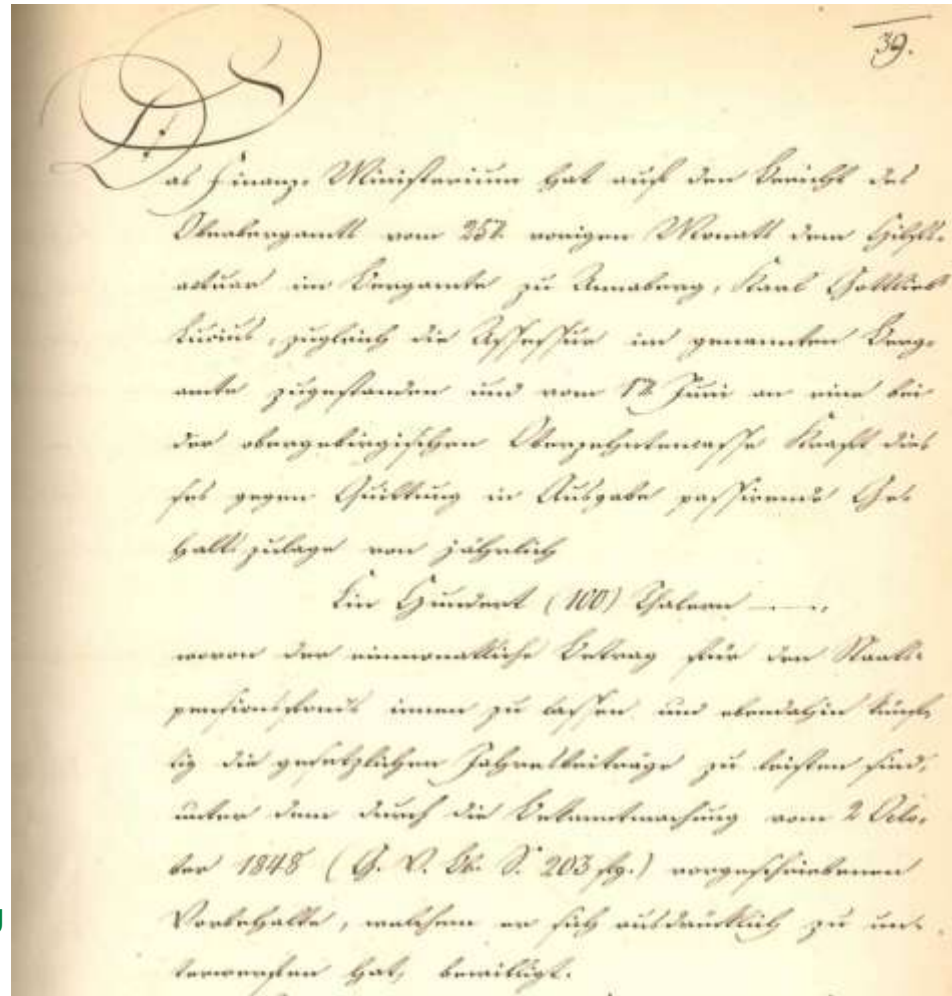 39.
Das Finanz-Ministerium hat auf den Bericht des
Oberbergamts vom 25t. vorigen Monats dem Hilfs-
actuar im Bergamte zu Annaberg, Karl Gottlieb
zugleich die Assessur im genannten Berg-
amte zugestanden und vom 1t. Juni an eine bei
der obergebirgischen Oberzehntencasse Kraft die-
ses gegen Quittung in Ausgabe passirende Ge-
haltszulage von jährlich
Ein Hundert (100) Thalern
wovon der einmonatliche Betrag für den Staats-
pensionsfonds innen zu lassen und ebendahin künf-
tig die gesetzlichen Jahresbeiträge zu leisten sind,
unter dem durch die Bekanntmachung vom 2 Octo-
ber 1848 (G. V. Bl. S. 203 flg.) vorgeschriebenen
Vorbehalte, welchem er sich ausdrücklich zu un-
terwerfen hat, bewilligt.